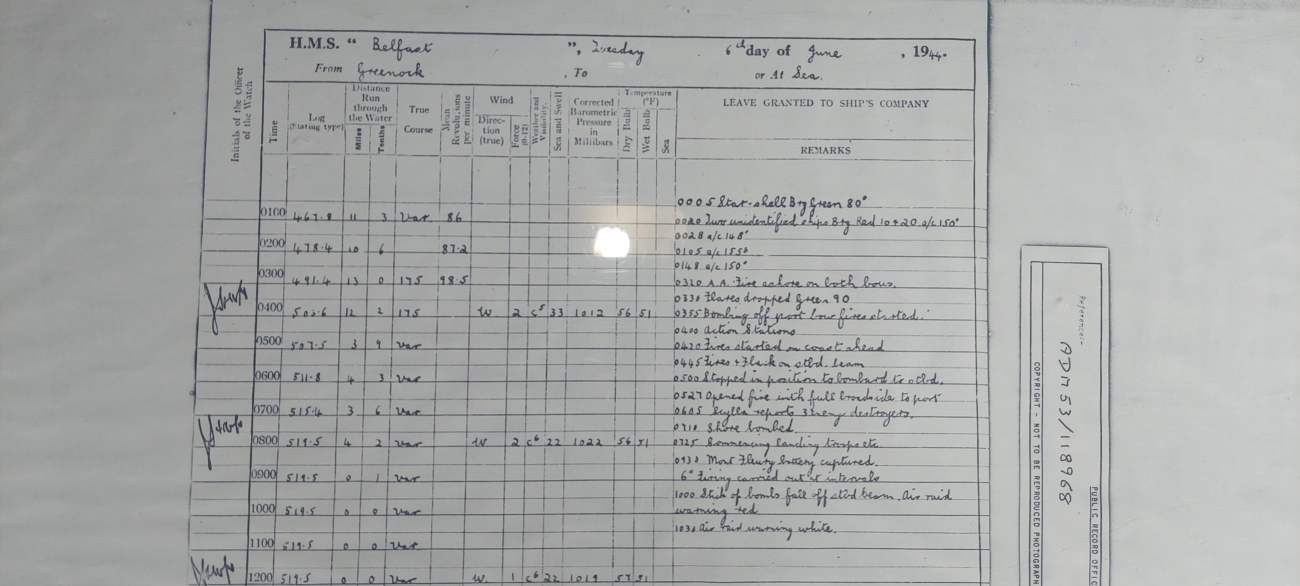 H.M.S. “ Belfast ”, Tuesday 6th day of June , 1944.
From Greenock , To or At Sea.
Initials of the Officer of the Watch
Time
Log (Stating type)
Distance Run through the Water
Miles
Tenths
True Course
Mean Revolutions per minute
Wind
Direction (true)
Force (0-12)
Weather and Visibility
Sea and Swell
Corrected Barometric Pressure in Millibars
Temperature (°F)
Dry Bulb
Wet Bulb
Sea
LEAVE GRANTED TO SHIP'S COMPANY
REMARKS
0005 Star-shell Brg Green 80°
0100 467.8 11 3 Var 86
0020 Two unidentified ships Brg Red 10+20 a/c 150°
0028 a/c 148°
0200 478.4 10 6 87.2
0105 a/c 155°
0148 a/c 150°
0300 491.4 13 0 175 98.5
0320 A.A. Fire ashore on both bows.
0330 Flares dropped Green 90
0400 503.6 12 2 175 W 2 c5 33 1012 56 51
0355 Bombing off port bow fires started.
0400 Action Stations
0500 507.5 3 9 Var
0420 Fires started on coast ahead
0445 Fires + Flack on stbd. beam
0600 511.8 4 3 Var
0500 Stopped in position to bombard to stbd.
0527 Opened fire with full broadside to port
0700 515.4 3 6 Var
0605 Scylla reports 3 enemy destroyers.
0710 Shore bombed.
0800 519.5 4 2 Var W 2 c6 22 1022 56 51
0725 Commencing landing troops etc
0930 Mont Fleury battery captured.
0900 519.5 0 1 Var
6" Firing carried out at intervals
1000 Stick of bombs fall off stbd beam. Air raid
1000 519.5 0 0 Var
warning red
1030 Air raid warning white.
1100 519.5 0 0 Var
1200 519.5 0 0 Var W. 1 c6 22 1019 57 51
Reference:-
ADM 53/118968
PUBLIC RECORD OFFIC
COPYRIGHT - NOT TO BE REPRODUCED PHOTOGRAPH